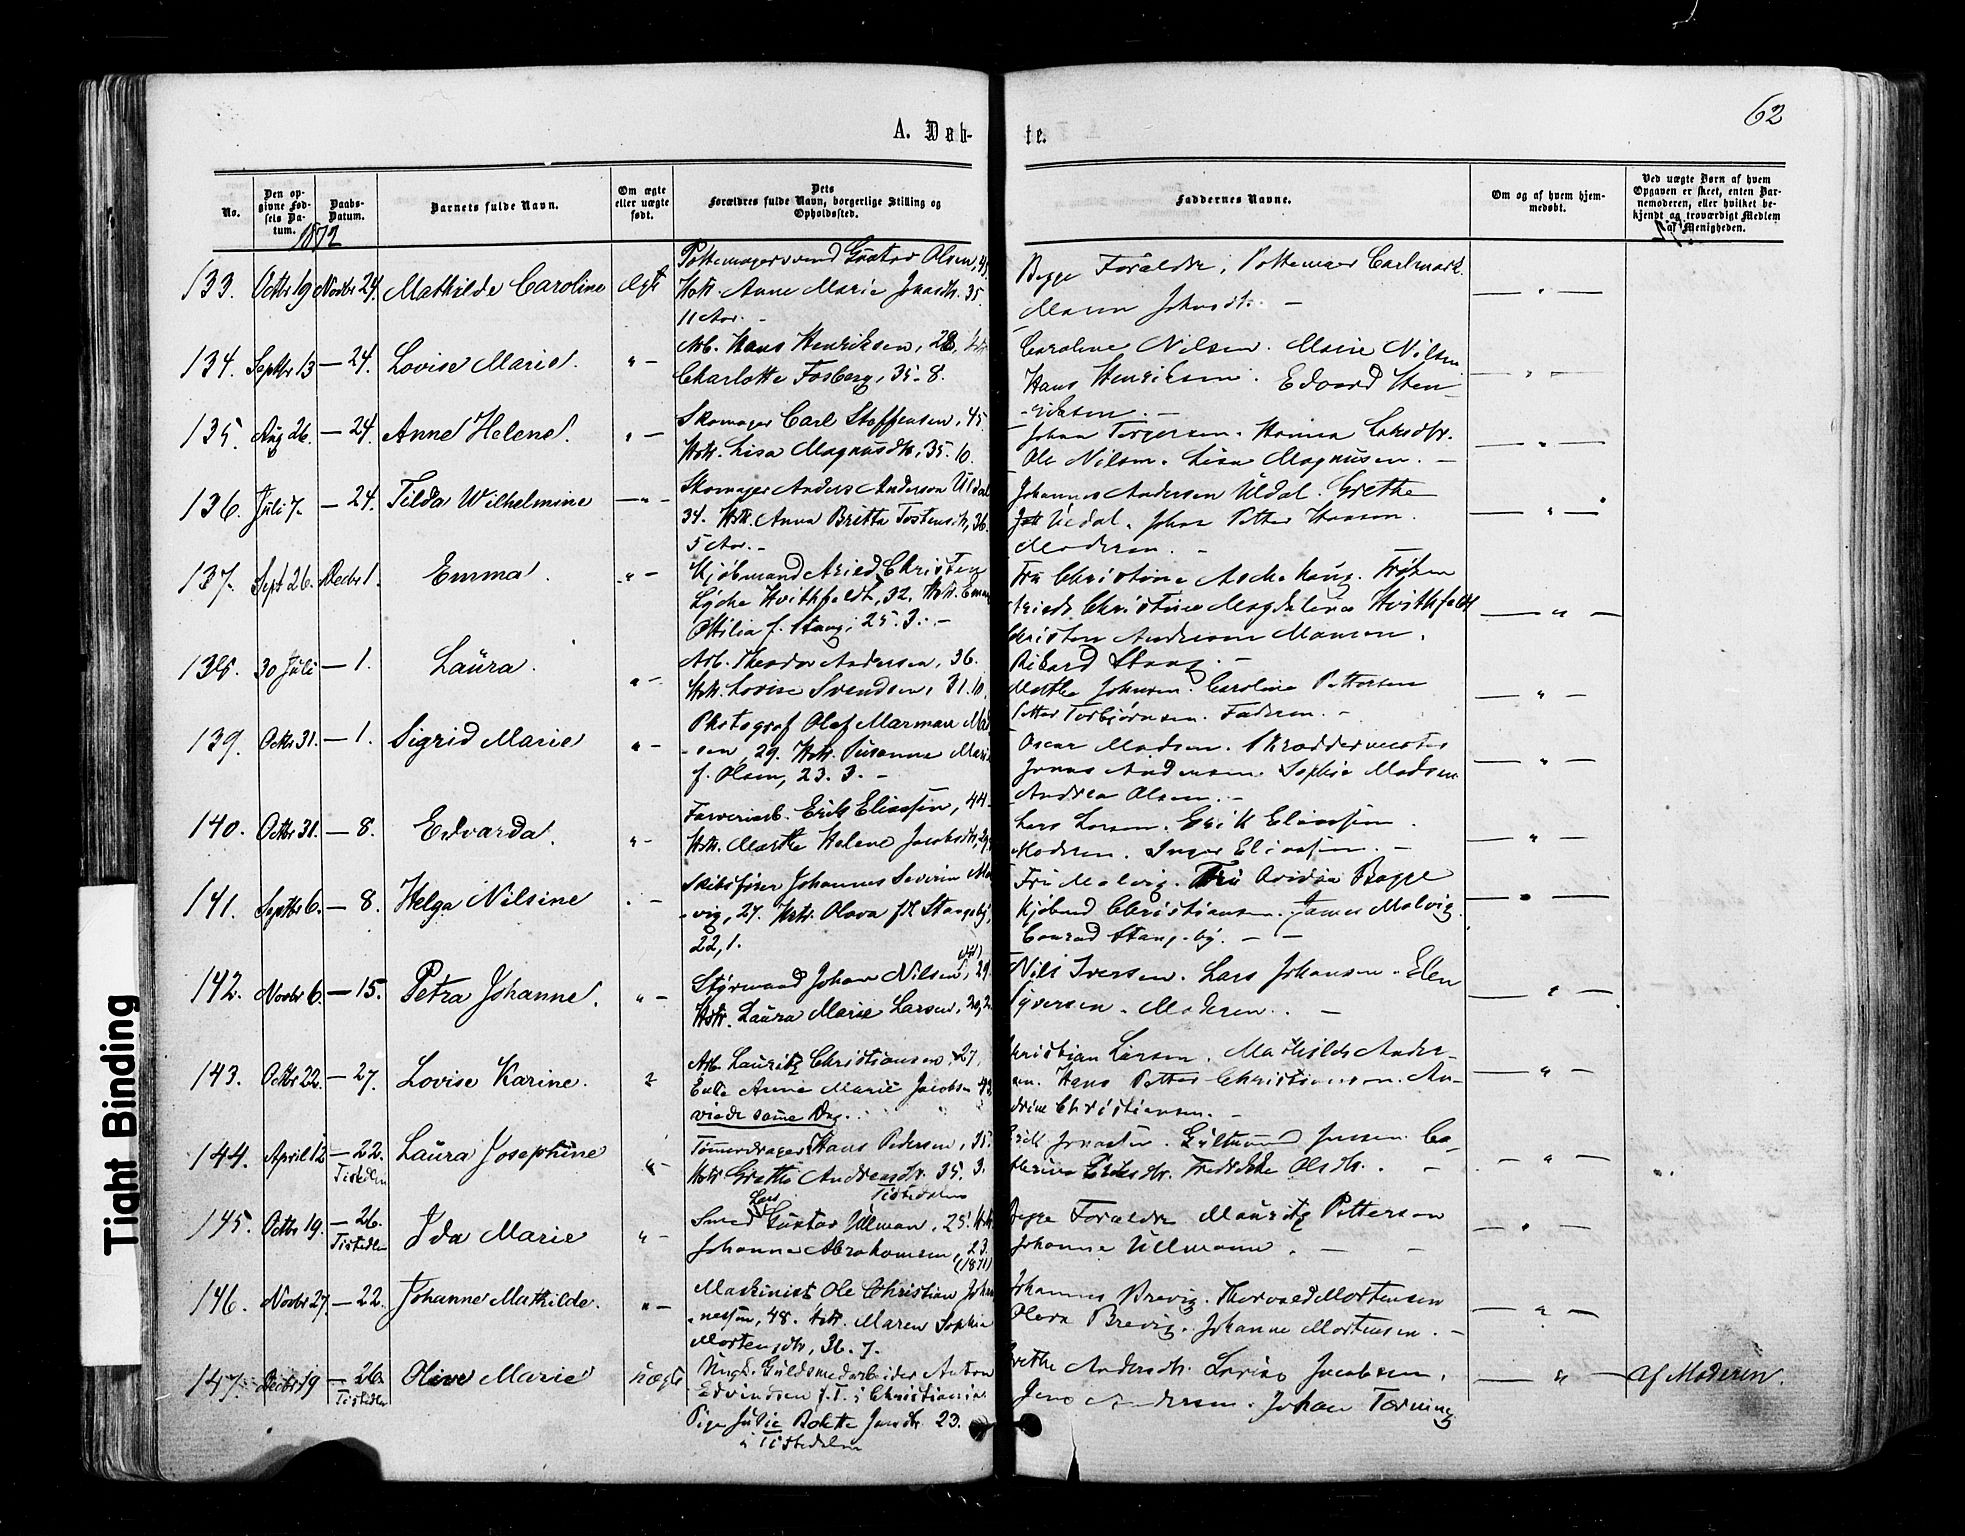 62
A. Døb-
te.
No.
Den opgivne Fødsels Datum.
Daabs-Datum.
Barnets fulde Navn.
Om ægte eller uægte født.
Dets Forældres fulde Navn, borgerlige Stilling og Opholdssted.
Faddernes Navne.
Om og af hvem hjemmedøbt.
Ved uægte Børn af hvem Opgaven er skeet, enten Barnemoderen, eller hvilket bekjendt og troværdigt Medlem af Menigheden.
1872
133. Octbr 19 Novbr 24. Mathilde Caroline Ægte
Pottemagersvend Gustav Olsen, 41
Hstr. Anne Marie 35.
11 Aar. -
Begge Forældre, Pottemager
Maren
134. Septbr 13 - 24. Lovise Marie. " -
Arb. Hans Henriksen, 28,
Charlotte Fosberg, 35. 8.
Caroline Nilsen. Marie Nilsen
Hans Henriksen. Edvard Hen-
riksen. -
135. Aug 26. - 24. Anne Helene. " -
Skomager Carl Stoffensen, 45
Hstr. Lisa Magnusdtr, 35. 10.
Johan Torgersen. Hanna
Ole Nilsen. Lisa Magnusen. -
136. Juli 7. - 24. Tilda Wilhelmine - " -
Skomager Anders Anderson Uldal
34. Hstr. Anna Britta 36.
5 Aar. -
Johannes Andersen Uldal. Grethe
Uldal. Johan Petter Hansen.
Moderen. -
137. Sept 26. Decbr 1. Emma. " -
Kjøbmand Aried Christen
Lyche Hvithfeldt, 32. Hstr. Emma
Ottilia f. Stang, 25. 3. -
Fru Christine Aschehaug. Frøken
Christine Magdalena Hvithfeldt
Christen Anderson Mansen.
Rikard Stang. -
138. 30 Juli - 1. Laura. " -
Arb. Theodor Andersen, 36.
Hstr. Lovise Svendsen, 31. 10.
Marthe Johnsen. Caroline Pettersen
Petter Torbjørnsen. Faderen. -
139. Octbr 31. - 1. Sigrid Marie " -
Photograf Olaf Marman Mad
-sen, 29. Hstr. Susanne Marie
f. Olsen, 23. 3. -
Oscar Madsen. Skræddermester
Jonas Andersen. Sophie Madsen
Andrea Olsen. -
140. Octbr 31. - 8. Edvarda. " -
Farveriarb. Erik Eliassen, 44
Hstr. Marthe Helene Jacobsdtr, 29
Lars Larsen. Erik Eliassen.
Moderen. Inger Eliassen. -
141. Septbr 6. - 8. Helga Nilsine . -
Skibsfører Johannes Severin Mal
-vig, 27. Hstr. Olava fd Stangeby,
22, 1.
Fru Malvig. Fru Ovidia Bagge
Kjøbmd Christiansen. James Malvig.
Conrad Stangeby. - -
142. Novbr 6. - 15. Petra Johanne. " -
Styrmand Johan Nilsen, 29.
Hstr. Laura Marie Larsen, 20, 2.
Nils Iversen. Lars Johansen. Elen
Syversen. Moderen. -
143. Octbr 22. - 27. Lovise Karine.
Arb. Lauritz Christiansen, 27,
Enke Anne Marie Jacobsen 42
viede samme Dag.
Christian Larsen. Mathilde Ander-
sen. Hans Petter Christiansen. An-
drine Christiansen. -
144. April 12 - 22. Tistedalen Laura Josephine " -
Tømmerdrager Hans Pedersen, 35.
Hstr Grethe Andreasdtr. 35. 3.
Tistedalen
Erik Gulmund Jensen. Ca-
tharina Eriksdtr. Fredrikke Olsdtr. -
145. Octbr 19. - 26. Tistedalen Ida Marie " -
Smed Lars Gustav Ullman, 25. Hstr
Johanna Abrahamsen, 23.
(1871)
Begge Forældre Mauritz Petterson
Johanne Ullmann. - -
146. Novbr 27. - 22. Johanne Mathilde. " -
Maskinist Ole Christian Johan
-nessen, 48. Hstr. Maren Sophie
Mortensdtr, 36. 7.
Johannes Brevig. Thorvald Mortensen
Olava Brevig. Johanne Mortensen. -
147. Decbr 19 - 26. Tistedalen Olive Marie Uægte
Ungk. Guldsmedarbeider Anton
Edvindsen f. T. i Christiania
Pige Julie Bolette 23.
i Tistedalen
Grethe Andersdtr. Lovise Jacobsen.
Jens Andersen. Johan Tørning
Af Moderen.
Tight Binding